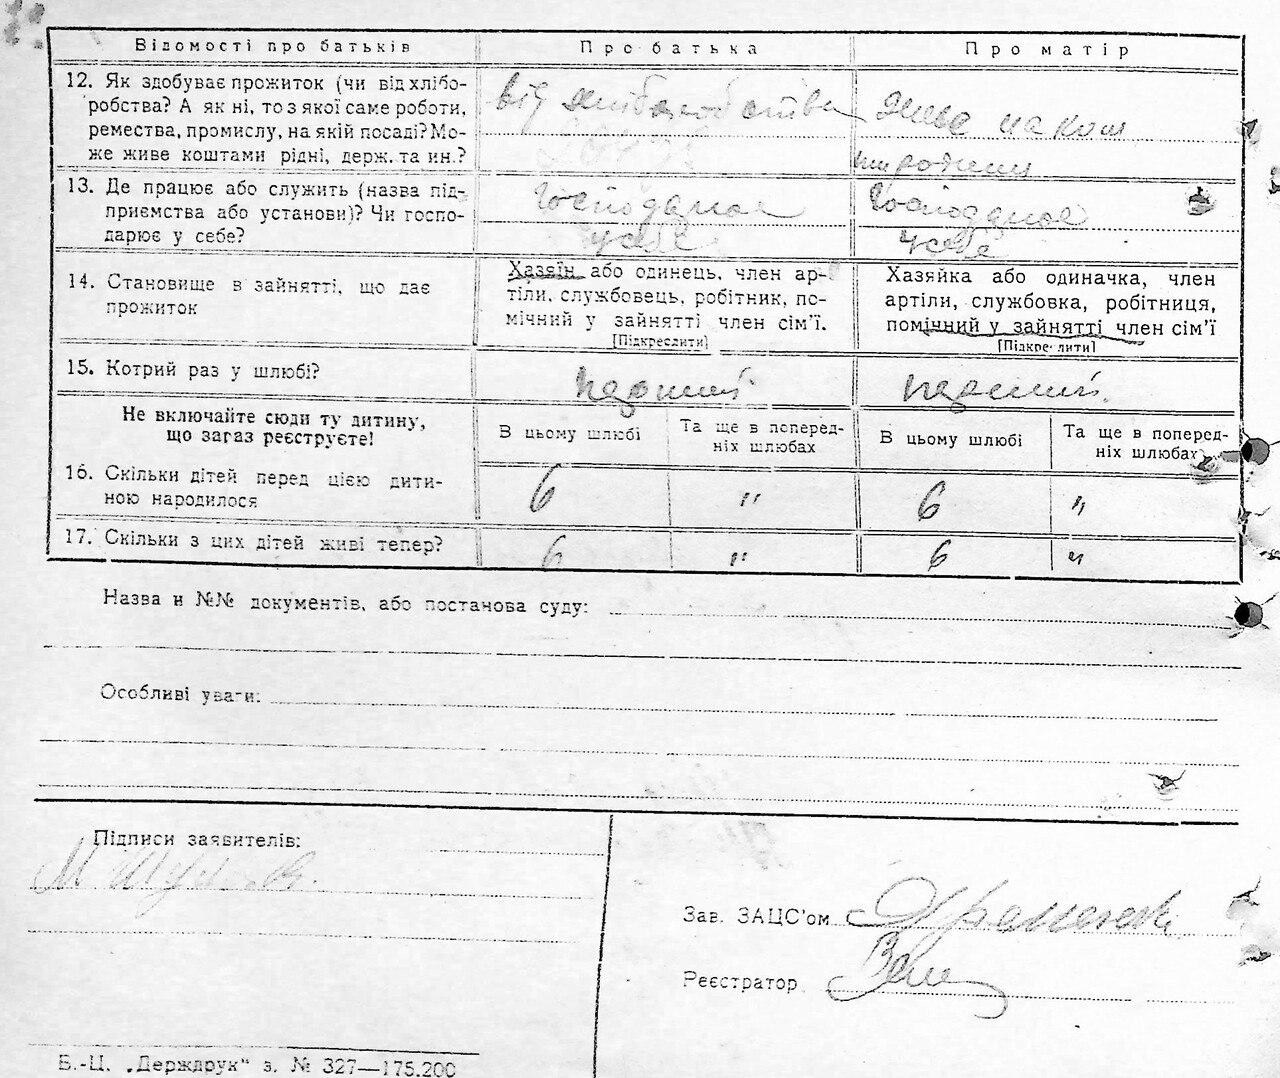 Відомості про батьків
Про батька
Про матір
12. Як здобуває прожиток (чи від хлібо-
робства? А як ні, то з якої саме роботи,
ремества, промислу, на якій посаді? Мо-
же живе коштами рідні, держ. та ин.?
від хліборобства
живе на кош
ти родини
13. Де працює або служить (назва під-
приємства або установи)? Чи госпо-
дарює у себе?
Господарює
у себе
Господарює
у себе
14. Становище в зайнятті, що дає
прожиток
Хазяїн або одинець, член ар-
тіли, службовець, робітник, по-
мічний у зайнятті член сім'ї.
[Підкреслити]
Хазяйка або одиначка, член
артіли, службовка, робітниця,
помічний у зайнятті член сім'ї
[Підкреслити]
15. Котрий раз у шлюбі?
перший
перший.
Не включайте сюди ту дитину,
що загаз реєструєте!
В цьому шлюбі
Та ще в поперед-
ніх шлюбах
В цьому шлюбі
Та ще в поперед-
ніх шлюбах
16. Скільки дітей перед цією дити-
ною народилося
6 " 6 "
17. Скільки з цих дітей живі тепер?
6 " 6 "
Назва и №№ документів, або постанова суду:
Особливі уваги:
Підписи заявителів:
М
Зав. ЗАЦС'ом
Реєстратор
Б.-Ц. „Держдрук" з. № 327—175.200